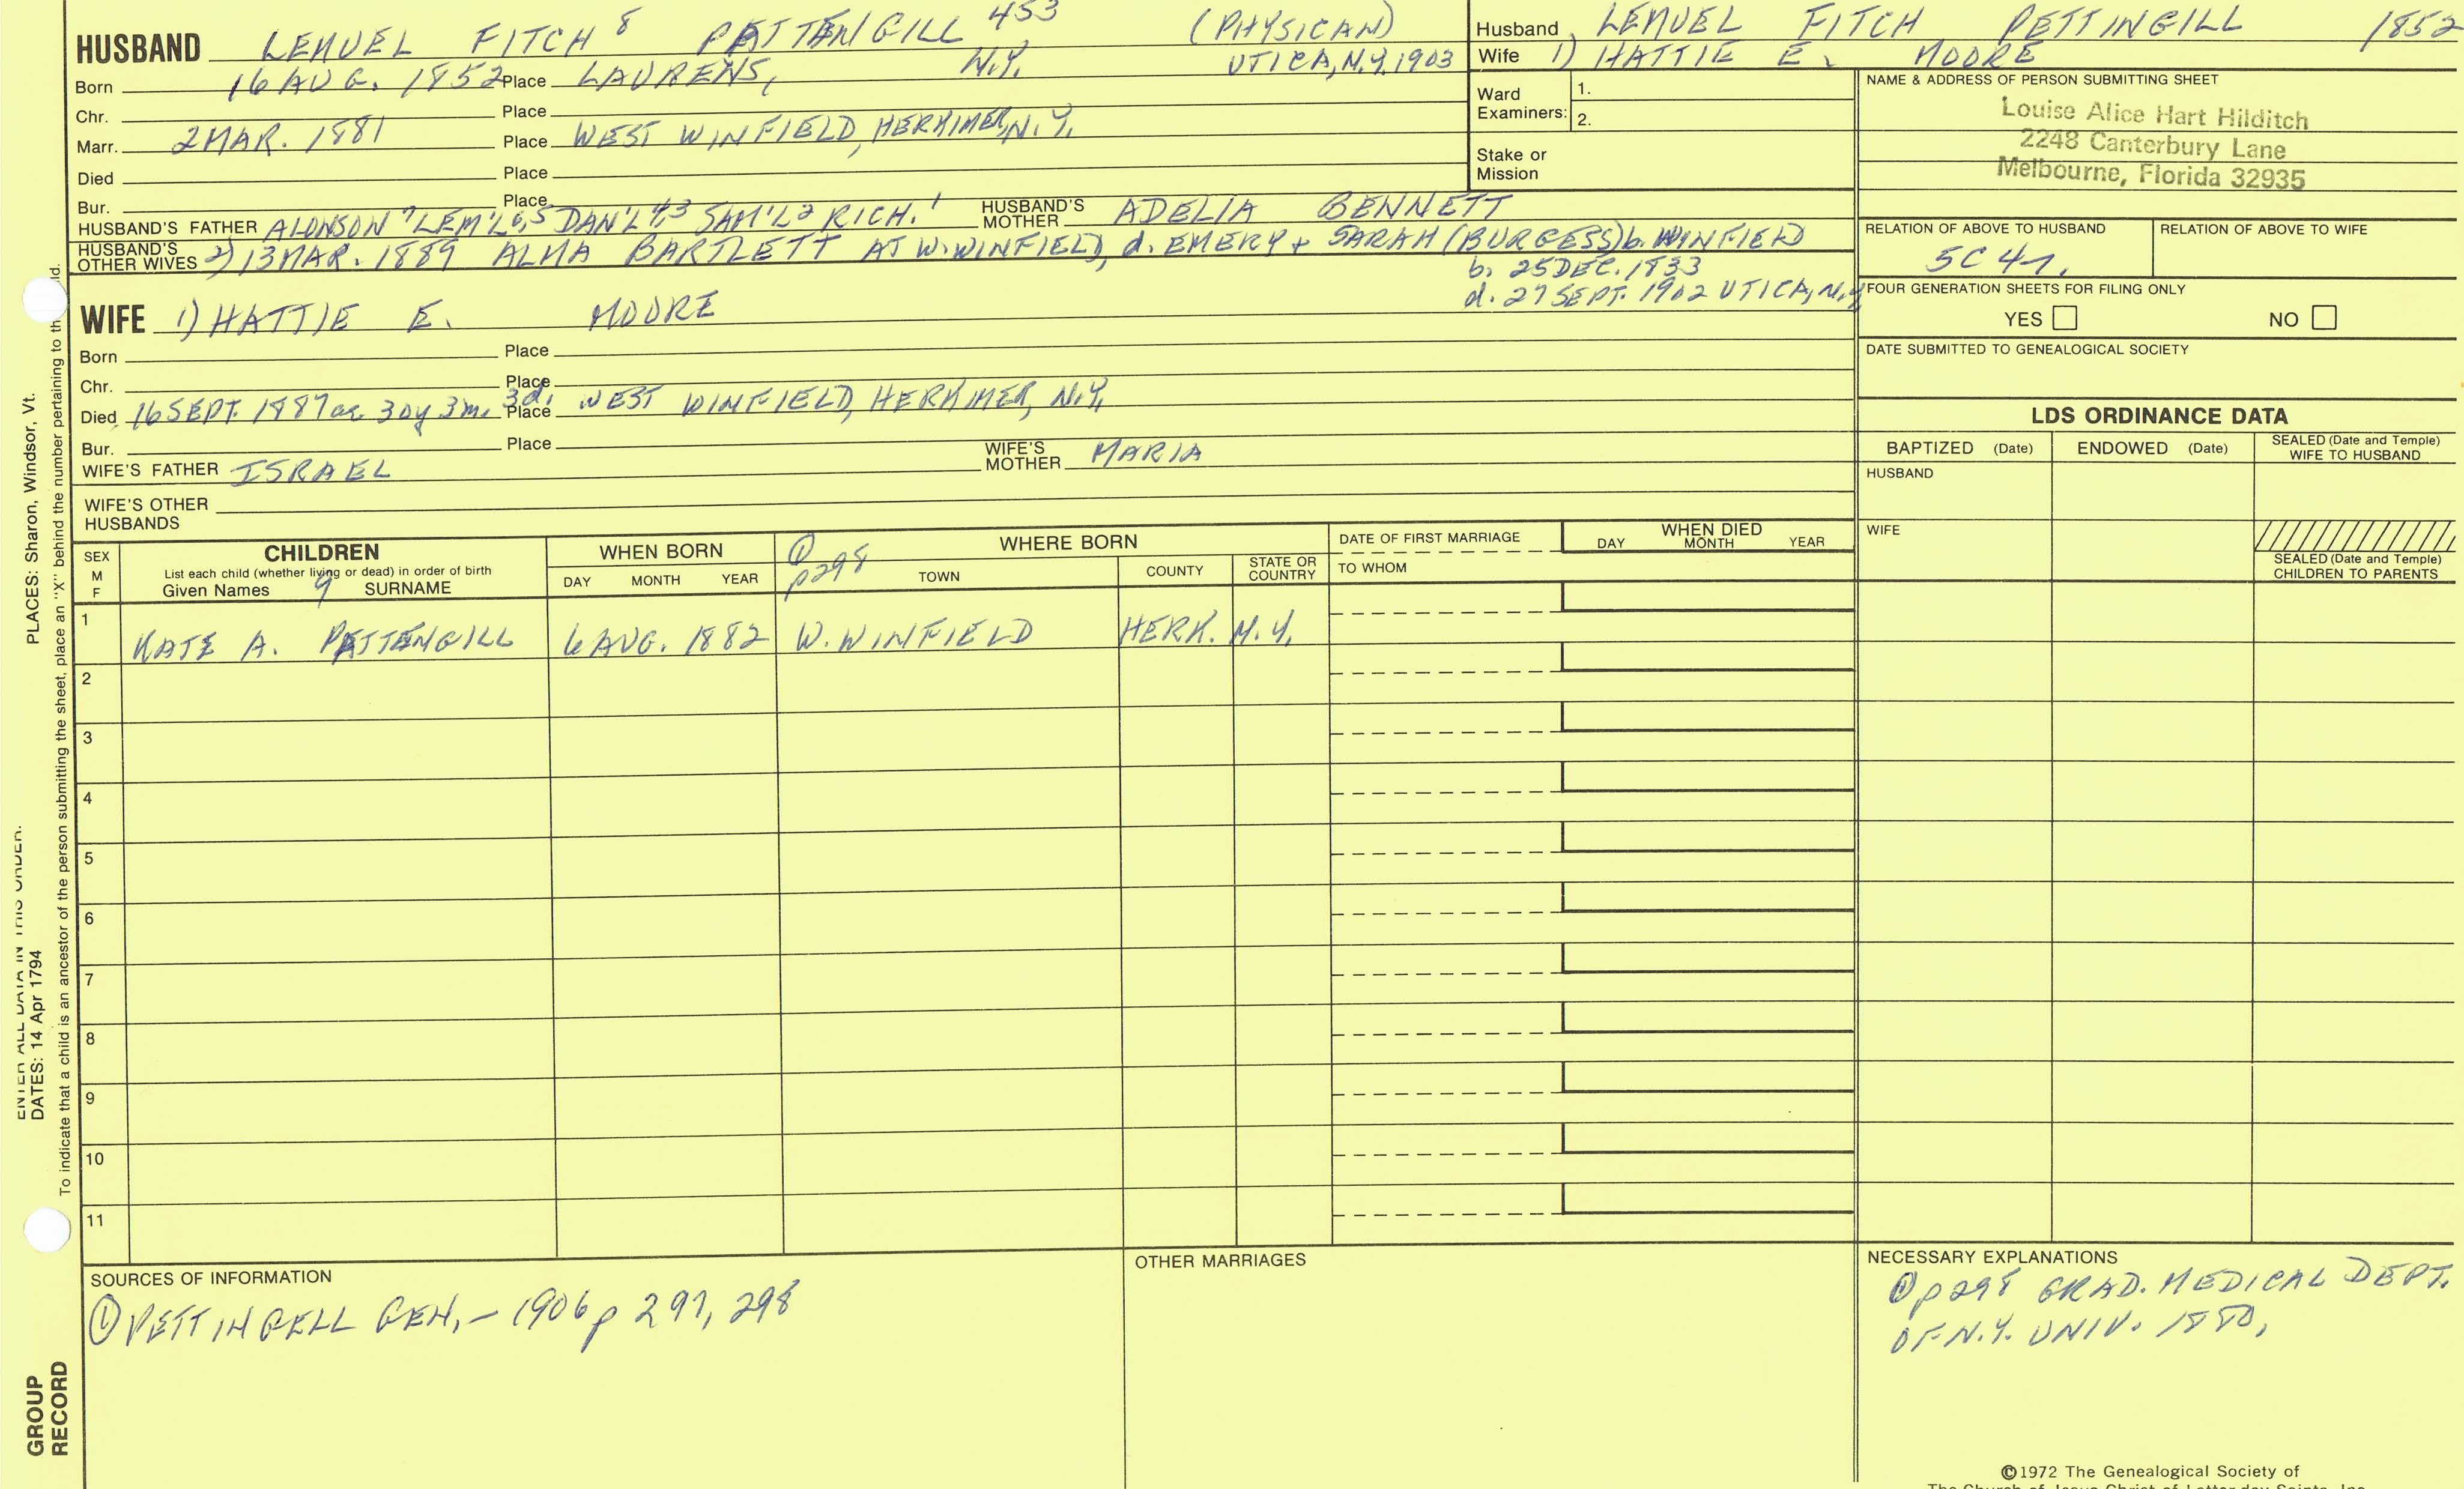 HUSBAND LEMUEL FITCH 8 PATTENGILL 453 (PHYSICAN)
Born 16 AUG. 1852 Place LAURENS, N.Y. UTICA, N.Y. 1903
Chr. Place
Marr. 2 MAR. 1881 Place WEST WINFIELD, HERKIMER, N.Y.
Died Place
Bur. Place
HUSBAND'S FATHER ALONSON 7 LEM'L 6,5 DAN'L 4,3 SAM'L 2 RICH. 1 HUSBAND'S MOTHER ADELIA BENNETT
HUSBAND'S OTHER WIVES 2) 13 MAR. 1889 ALMA BARTLETT AT W. WINFIELD, d. EMERY + SARAH (BURGESS) b. WINFIELD
b. 25 DEC. 1833
d. 27 SEPT. 1902 UTICA, N.Y.
WIFE 1) HATTIE E. MOORE
Born Place
Chr. Place
Died 16 SEPT. 1887 ae 30y 3m. 3d. Place WEST WINFIELD, HERKIMER, N.Y.
Bur. Place
WIFE'S FATHER ISRAEL WIFE'S MOTHER MARIA
WIFE'S OTHER HUSBANDS
Husband LEMUEL FITCH PETTINGILL 1852
Wife 1) HATTIE E. MOORE
Ward Examiners: 1.
2.
Stake or Mission
NAME & ADDRESS OF PERSON SUBMITTING SHEET
Louise Alice Hart Hilditch
2248 Canterbury Lane
Melbourne, Florida 32935
RELATION OF ABOVE TO HUSBAND RELATION OF ABOVE TO WIFE
5C 4r.
FOUR GENERATION SHEETS FOR FILING ONLY
YES NO
DATE SUBMITTED TO GENEALOGICAL SOCIETY
LDS ORDINANCE DATA
BAPTIZED (Date) ENDOWED (Date) SEALED (Date and Temple) WIFE TO HUSBAND
HUSBAND
WIFE
SEALED (Date and Temple) CHILDREN TO PARENTS
SEX M F CHILDREN WHEN BORN ① p298 WHERE BORN DATE OF FIRST MARRIAGE WHEN DIED
List each child (whether living or dead) in order of birth
Given Names 9 SURNAME DAY MONTH YEAR TOWN COUNTY STATE OR COUNTRY TO WHOM DAY MONTH YEAR
1 KATE A. PATTENGILL 6 AUG. 1882 W. WINFIELD HERK. N.Y.
2
3
4
5
6
7
8
9
10
11
SOURCES OF INFORMATION
① PETTINGELL GEN. - 1906 p 297, 298
OTHER MARRIAGES
NECESSARY EXPLANATIONS
① p298 GRAD. MEDICAL DEPT.
OF N.Y. UNIV. 1880.
©1972 The Genealogical Society of
The Church of Jesus Christ of Latter-day Saints, Inc.
ENTER ALL DATA IN THIS ORDER:
DATES: 14 Apr 1794
PLACES: Sharon, Windsor, Vt.
To indicate that a child is an ancestor of the person submitting the sheet, place an "X" behind the number pertaining to th ild.
GROUP
RECORD